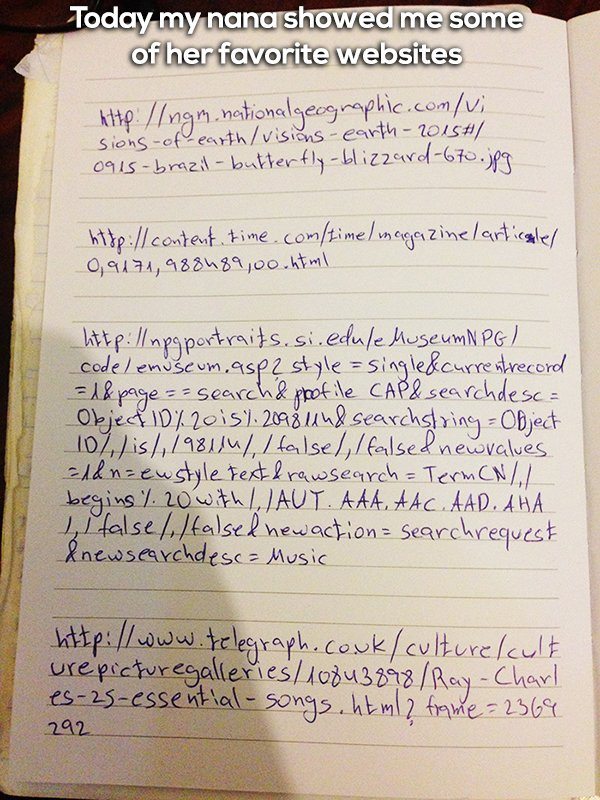 Today my nana showed me some
of her favorite websites
http://ngm.nationalgeographic.com/vi
sions-of-earth/visions-earth-2015#/
0915-brazil-butterfly-blizzard-670.jpg
http://content.time.com/time/magazine/article/
0,9171,988489,00.html
http://npgportraits.si.edu/eMuseumNPG/
code/emuseum.asp?style=single&currentrecord
=1&page==search&profile CAP&searchdesc=
Object ID%20is%209811U&searchstring=OBject
ID/,/is/,/9811U/,/false/,/false&newvalues
=1&n=ewstyle text&rawsearch=TermCN/,/
begins%20with/,/AUT.AAA.AAC.AAD.AHA
/,/false/,/false&newaction=searchrequest
&newsearchdesc=Music
http://www.telegraph.co.uk/culture/cult
urepicturegalleries/10843898/Ray-Charl
es-25-essential-songs.html?frame=2369
292